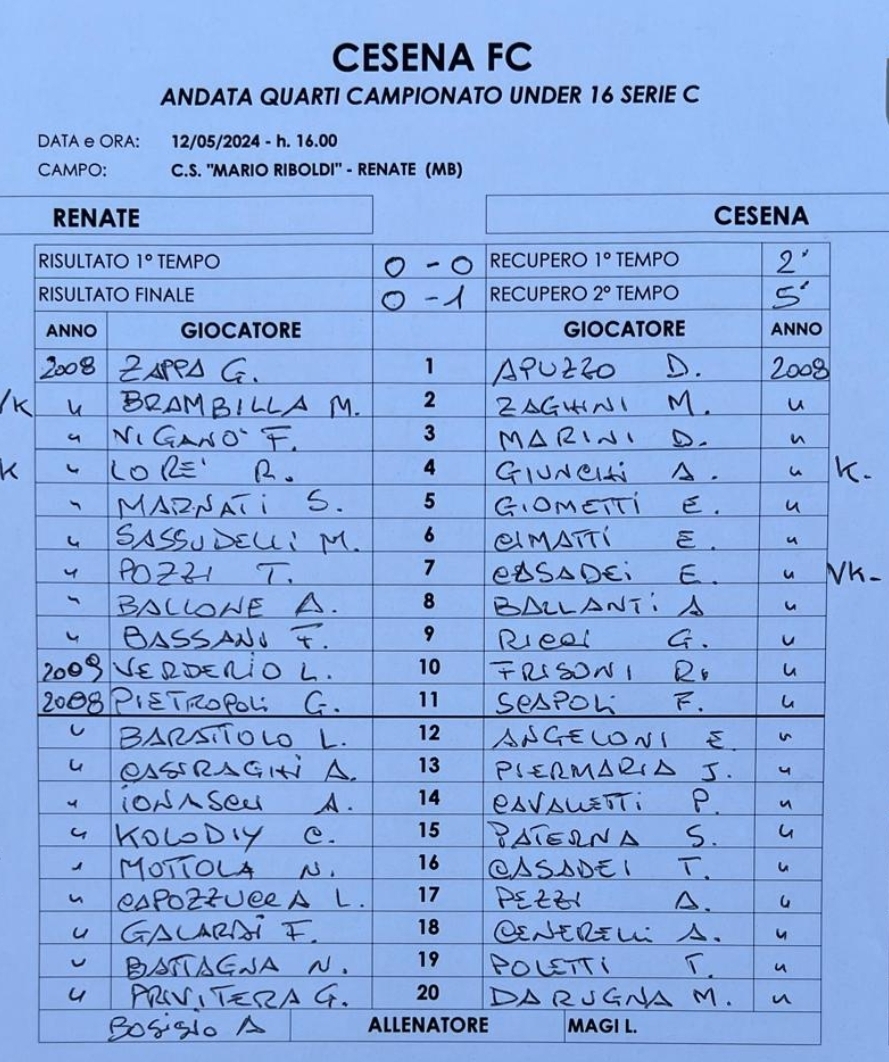 CESENA FC
ANDATA QUARTI CAMPIONATO UNDER 16 SERIE C
DATA e ORA: 12/05/2024 - h. 16.00
CAMPO: C.S. "MARIO RIBOLDI" - RENATE (MB)
RENATE CESENA
RISULTATO 1° TEMPO 0 - 0 RECUPERO 1° TEMPO 2'
RISULTATO FINALE 0 - 1 RECUPERO 2° TEMPO 5'
ANNO GIOCATORE GIOCATORE ANNO
2008 ZAPPA G. 1 APUZZO D. 2008
VK " BRAMBILLA M. 2 ZAGHINI M. "
" NIGANO' F. 3 MARINI D. "
K " LORE' R. 4 GIUNCHI A. " K.
" MARNATI S. 5 GIOMETTI E. "
" SASSUDELLI M. 6 CIMATTI E. "
" POZZI T. 7 CASADEI E. " VK-
" BALLONE A. 8 BALLANTI A "
" BASSANI F. 9 RICCI G. "
2009 VERDERIO L. 10 FRISONI R. "
2008 PIETROPOLI G. 11 SCAPOLI F. "
" BARATTOLO L. 12 ANGELONI E. "
" CASIRAGHI A. 13 PIERMARIA J. "
" IONASCU A. 14 CAVALLETTI P. "
" KOLODIY C. 15 PATERNA S. "
" MOTTOLA N. 16 CASADEI T. "
" CAPOZZUCCA L. 17 PEZZI A. "
" F. 18 CENERELLI A. "
" BATTAGNA N. 19 POLETTI T. "
" PRIVITERA G. 20 DARUGNA M. "
BOSISIO A ALLENATORE MAGI L.